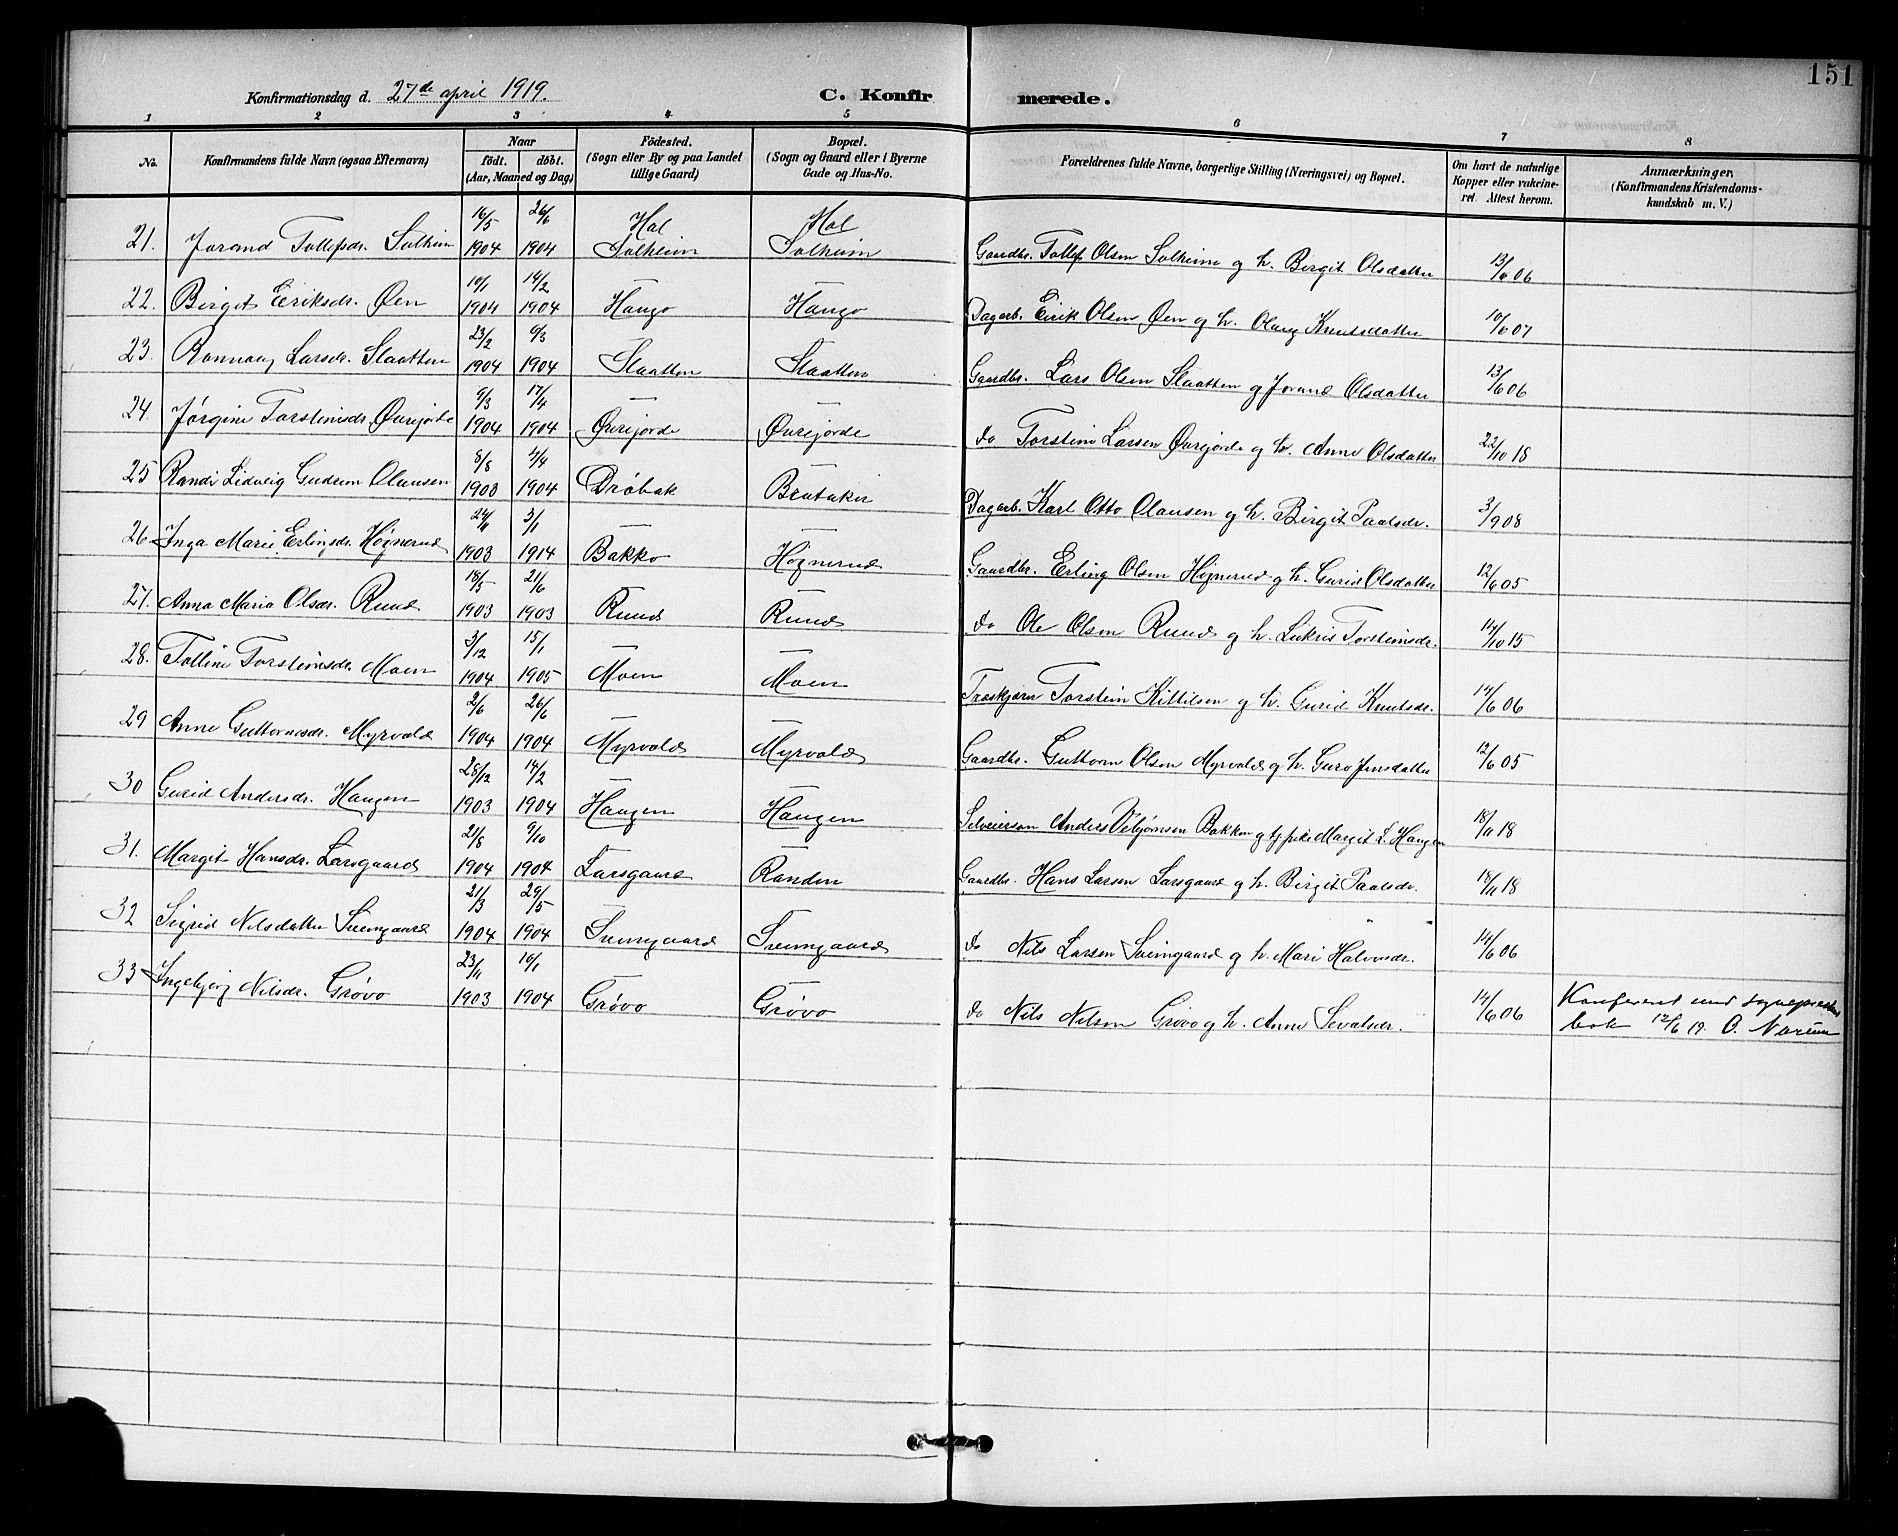 151
Konfirmationsdag d. 27de april 1919.
C. Konfirmerede.
1 2 3 4 5 6 7 8
No.
Konfirmandens fulde Navn (ogsaa Efternavn)
Naar
födt. döbt.
(Aar, Maaned og Dag)
Födested.
(Sogn eller By og paa Landet
tillige Gaard)
Bopæl.
(Sogn og Gaard eller i Byerne
Gade og Hus-No.
Forældrenes fulde Navne, borgerlige Stilling (Næringsvei) og Bopæl.
Om havt de naturlige
Kopper eller vakcine-
ret. Attest herom.
Anmærkninger.
(Konfirmandens Kristendoms-
kundskab m. V.)
16/5 26/6 Hol Hol
21. Jorand Tollefsdr. Solheim 1904 1904 Solheim Solheim Gaardbr. Tollef Olsen Solheim og h. Birgit Olsdatter 13/6 06
10/1 14/2 — —
22. Birgit Eeriksdr. Øen 1904 1904 Haugo Haugo Dagarb. Eirik Olsen Øen og h. Olaug Knutsdatter 10/6 07
23/2 6/3 — —
23. Rannaug Larsdr. Slaatten 1904 1904 Slaatten Slaatten Gaardbr. Lars Olsen Slaatten og Jorand Olsdatter 13/6 06
9/3 17/4 — —
24. Jørgine Torsteinsdr. Øvrejorde 1904 1904 Øvrejorde Øvrejorde do Torstein Larsen Øvrejorde og h. Anne Olsdatter 22/10 18
8/8 4/4 —
25 Randi Lidveig Gudrun Olausen 1903 1904 Drøbak Brataker Dagarb. Karl Otto Olausen og h. Birgit Paalsdr. 3/9 08
24/11 3/1 — —
26 Inga Marie Erlingsdr. Høgnerud 1903 1914 Bakko Høgnerud Gaardbr. Erling Olsen Høgnerud og h. Gurid Olsdatter 12/6 05
18/5 21/6 — —
27. Anna Maria Olsdr. Ruud 1903 1903 Ruud Ruud do Ole Olsen Ruud og h. Lukris Torsteinsdr. 14/10 15
3/12 15/1 — —
28. Tolline Torsteinsdr. Moen 1904 1905 Moen Moen Træskjærer Torstein Kittilsen og h. Gurid Knutsdr. 14/6 06
2/6 26/6 — —
29 Anne Guttormsdr. Myrvold 1904 1904 Myrvold Myrvold Gaardbr. Guttorm Olsen Myrvold og h. Guro Jensdatter 12/6 05
28/12 14/2 — —
30 Gurid Andersdr. Haugen 1903 1904 Haugen Haugen Selveiersøn Anders Vebjørnsen Bakken og tj. pike Margit L. Haugen 18/11 18
21/8 9/10
31. Margit Hansdr. Larsgaard 1904 1904 Larsgaard Randen Gaardbr. Hans Larsen Larsgaard og h. Birgit Paalsdr. 18/11 18
21/3 29/5 — —
32 Sigrid Nilsdatter Sveingaard 1904 1904 Sveingaard Sveingaard do Nils Larsen Sveingaard og h. Mari Halvorsdr. 14/6 06
23/11 10/1 — —
33 Ingebjørg Nilsdr. Grøvo 1903 1904 Grøvo Grøvo do Nils Nilsen Grøvo og h. Anne Sevatsdr. 14/6 06
Konfereret med sogneprestens
bok 12/6 19. O. Norum